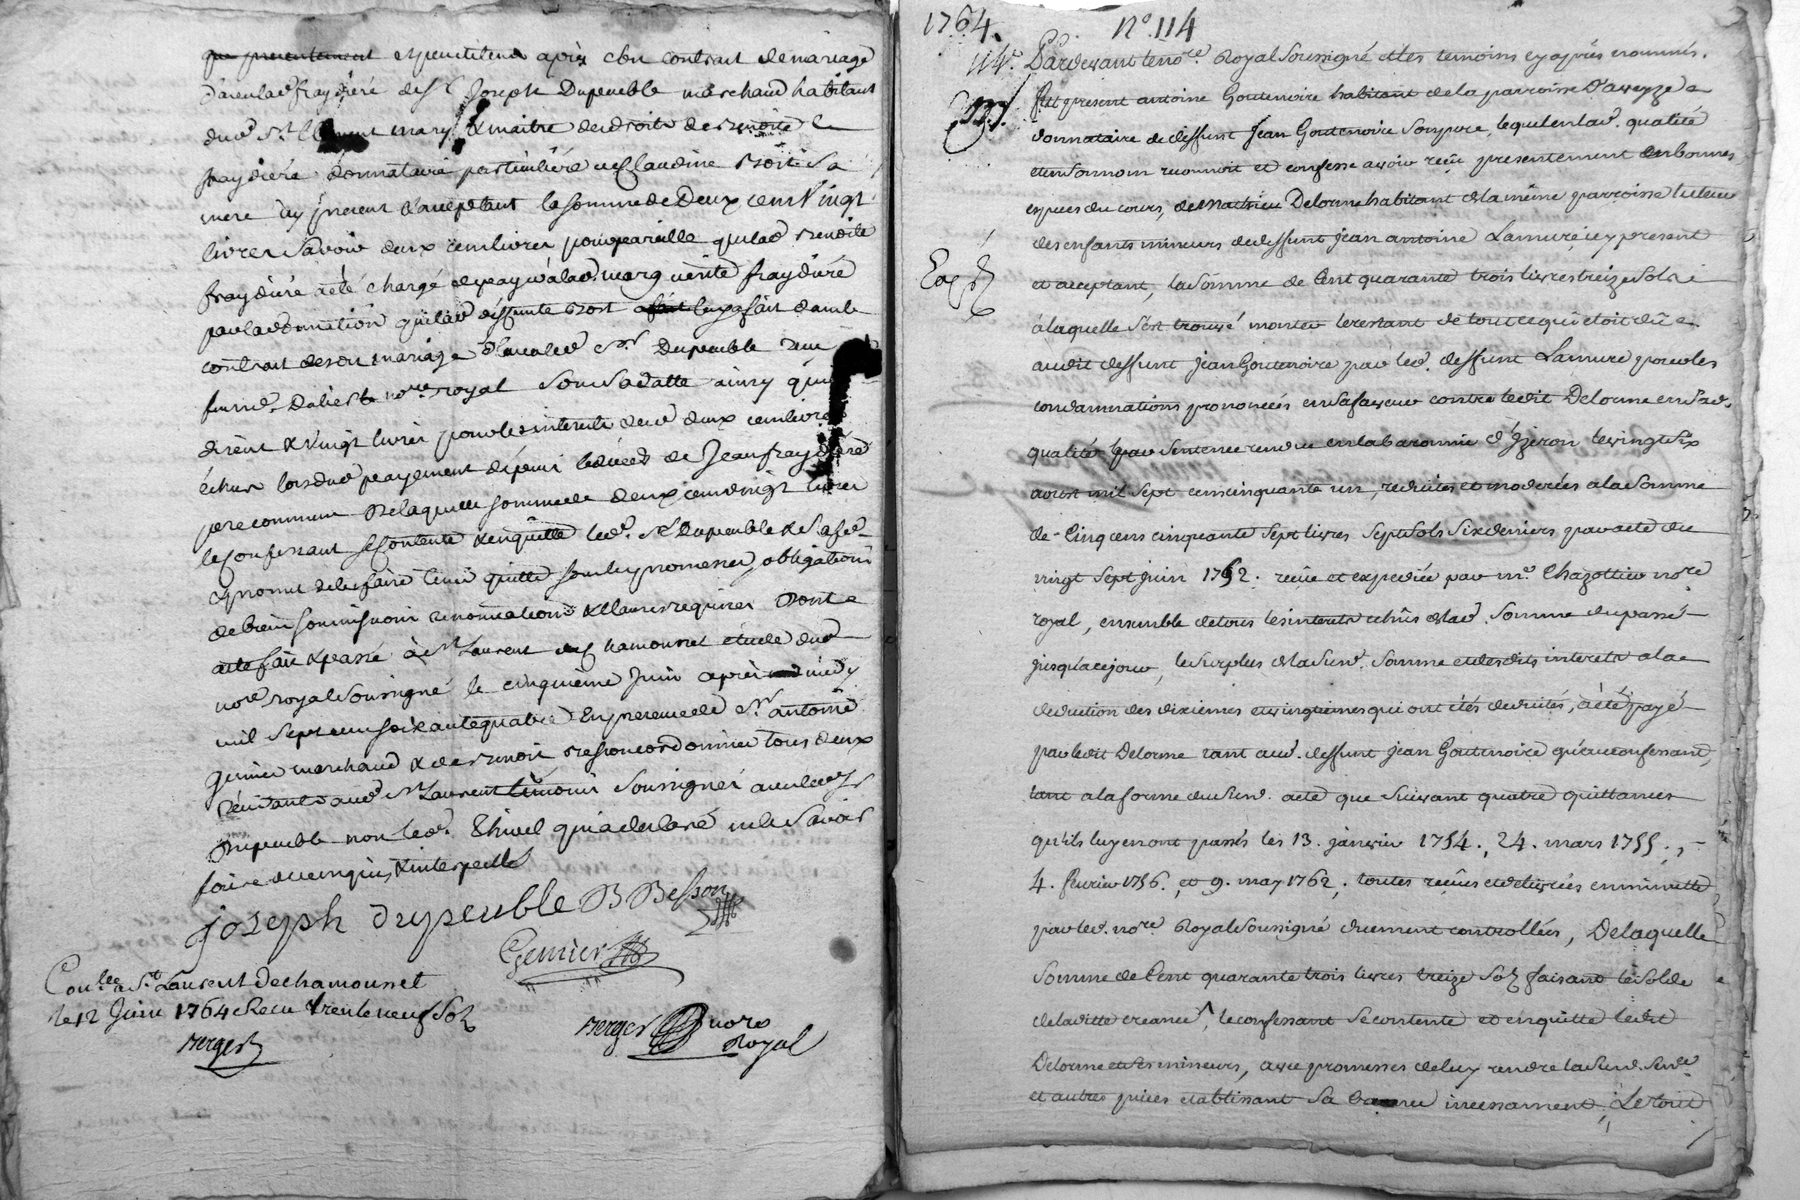 après son contrat de mariage
Joseph Dupeuble marchand habitant
mary & maitre des droits de
fraydiére donnataire particuliére de Claudine
mere icy present & acceptant la somme de Deux cent Vingt
livres Savoir deux cent livres pour pareille que lad
fraydiére a été chargé de payer à lad. marguerite fraydiére
par la donnation que lad. deffunte luy a fait dans le
contrat de son mariage avec led. Sr. Dupeuble
no.re royal Sous Sa datte ainsy qu'ils
dirent & Vingt livres pour les interets de deux cent livres
échus lors du payement depuis le decés de Jean fraydiére
pere commun De laquelle somme de deux cent vingt livres
le confessant se contente & en quitte led. Sr. Dupeuble & Sa fe.
& promet de les faire tenir quitte sous les promesses, obligations
de biens soumissions renonciations & clauses requises Dont
acte fait & passé à St. Laurent de Chamousset étude dud.
no.re royal Soussigné le cinquieme Juin après midy
mil Sept cent soixante quatre En presence de Sr. antoine
marchand &
Résidants aud. St. Laurent témoins Soussignés avec led. Sr
Dupeuble non led. Thivel qui a declaré ne le Savoir
faire de ce enquis & interpellé
joseph dupeuble B Besson
Con.lé à St. Laurent De chamousset
le 12 Juin 1764 Recu trente neuf Sols
no.re
Royal
1764. N° 114
114e. Pardevant le no.re Royal Soussigné et les temoins cy après nommés.
fut present antoine Goutenoire habitant de la parroisse d'aveyze
donnataire de deffunt Jean Goutenoire Son pere, lequel en lad. qualité
et en Son nom reconnoit et confesse avoir reçu presentement en bonnes
especes du cours, de Mathieu Delorme habitant de la même parroisse tuteur
des enfants mineurs de deffunt jean antoine Lamure icy present
Exp.
et acceptant, la Somme de Cent quarante trois livres treize Sols
à laquelle s'est trouvé monter le restant de tout ce qui etoit dû
audit deffunt jean Goutenoire par led. deffunt Lamure pour les
condamnations prononcées en sa faveur contre ledit Delorme en Sad.
qualité par Sentence rendue en la baronnie d'yzeron le vingt Six
aoust mil Sept cens cinquante un, reduites et moderées à la Somme
de Cinq cens cinquante Sept livres Sept Sols Six deniers par acte du
vingt Sept juin 1752. reçu et expediée par me. Chazottier no.re
royal, ensemble de tous les interets echus de lad. Somme du passé
jusqu'a ce jour, le Surplus de la Sus.d. Somme et desdits interets a la
deduction des dixiemes et vingtiemes qui ont étés deduits, a été payé
par ledit Delorme tant aud. deffunt jean Goutenoire qu'au confessant,
tant a la forme du Sus.d. acte que Suivant quatre quittances
qu'ils luy en ont passés les 13. janvier 1754., 24. mars 1755.,
4. fevrier 1756. et 9. may 1762., toutes reçues et delivrées en minutte
par led. no.re Royal Soussigné duement controllées, De laquelle
Somme de Cent quarante trois livres treize Sols faisant le Solde
de laditte creance, le confessant Se contente et en quitte ledit
Delorme et Ses mineurs, avec promesses de luy rendre la Sus.d. Sen.ce
et autres pieces etablissant Sa incessament, Le tout